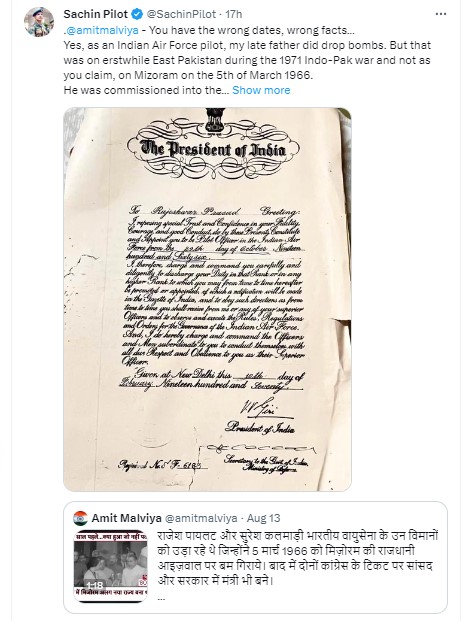 Sachin Pilot @SachinPilot · 17h
.@amitmalviya - You have the wrong dates, wrong facts...
Yes, as an Indian Air Force pilot, my late father did drop bombs. But that
was on erstwhile East Pakistan during the 1971 Indo-Pak war and not as
you claim, on Mizoram on the 5th of March 1966.
He was commissioned into the... Show more
The President of India
To Rajeshwar Prasad Greeting:
I, reposing special Trust and Confidence in your Fidelity,
Courage, and good Conduct, do by these Presents Constitute
and Appoint you to be Pilot Officer in the Indian Air
Force from the day of October Nineteen
hundred and Sixty six.
I, therefore, charge and command you carefully and
diligently to discharge your Duty in that Rank or in any
higher Rank to which you may from time to time hereafter
be promoted or appointed, of which a notification will be made
in the Gazette of India, and to obey such directions as from
time to time you shall receive from me or any of your superior
Officers and to observe and execute the Rules, Regulations
and Orders for the Governance of the Indian Air Force.
And, I do hereby charge and command the Officers
and Men subordinate to you to conduct themselves with
all due Respect and Obedience to you as their Superior
Officer.
Given at New Delhi this day of
February Nineteen hundred and Seventy
V V Giri
President of India
Secretary to the Govt. of India,
Ministry of Defence
Amit Malviya @amitmalviya · Aug 13
राजेश पायलट और सुरेश कलमाड़ी भारतीय वायुसेना के उन विमानों
को उड़ा रहे थे जिन्होंने 5 मार्च 1966 को मिज़ोरम की राजधानी
आइज़वाल पर बम गिराये। बाद में दोनों कांग्रेस के टिकट पर सांसद
और सरकार में मंत्री भी बने।
...
1:18